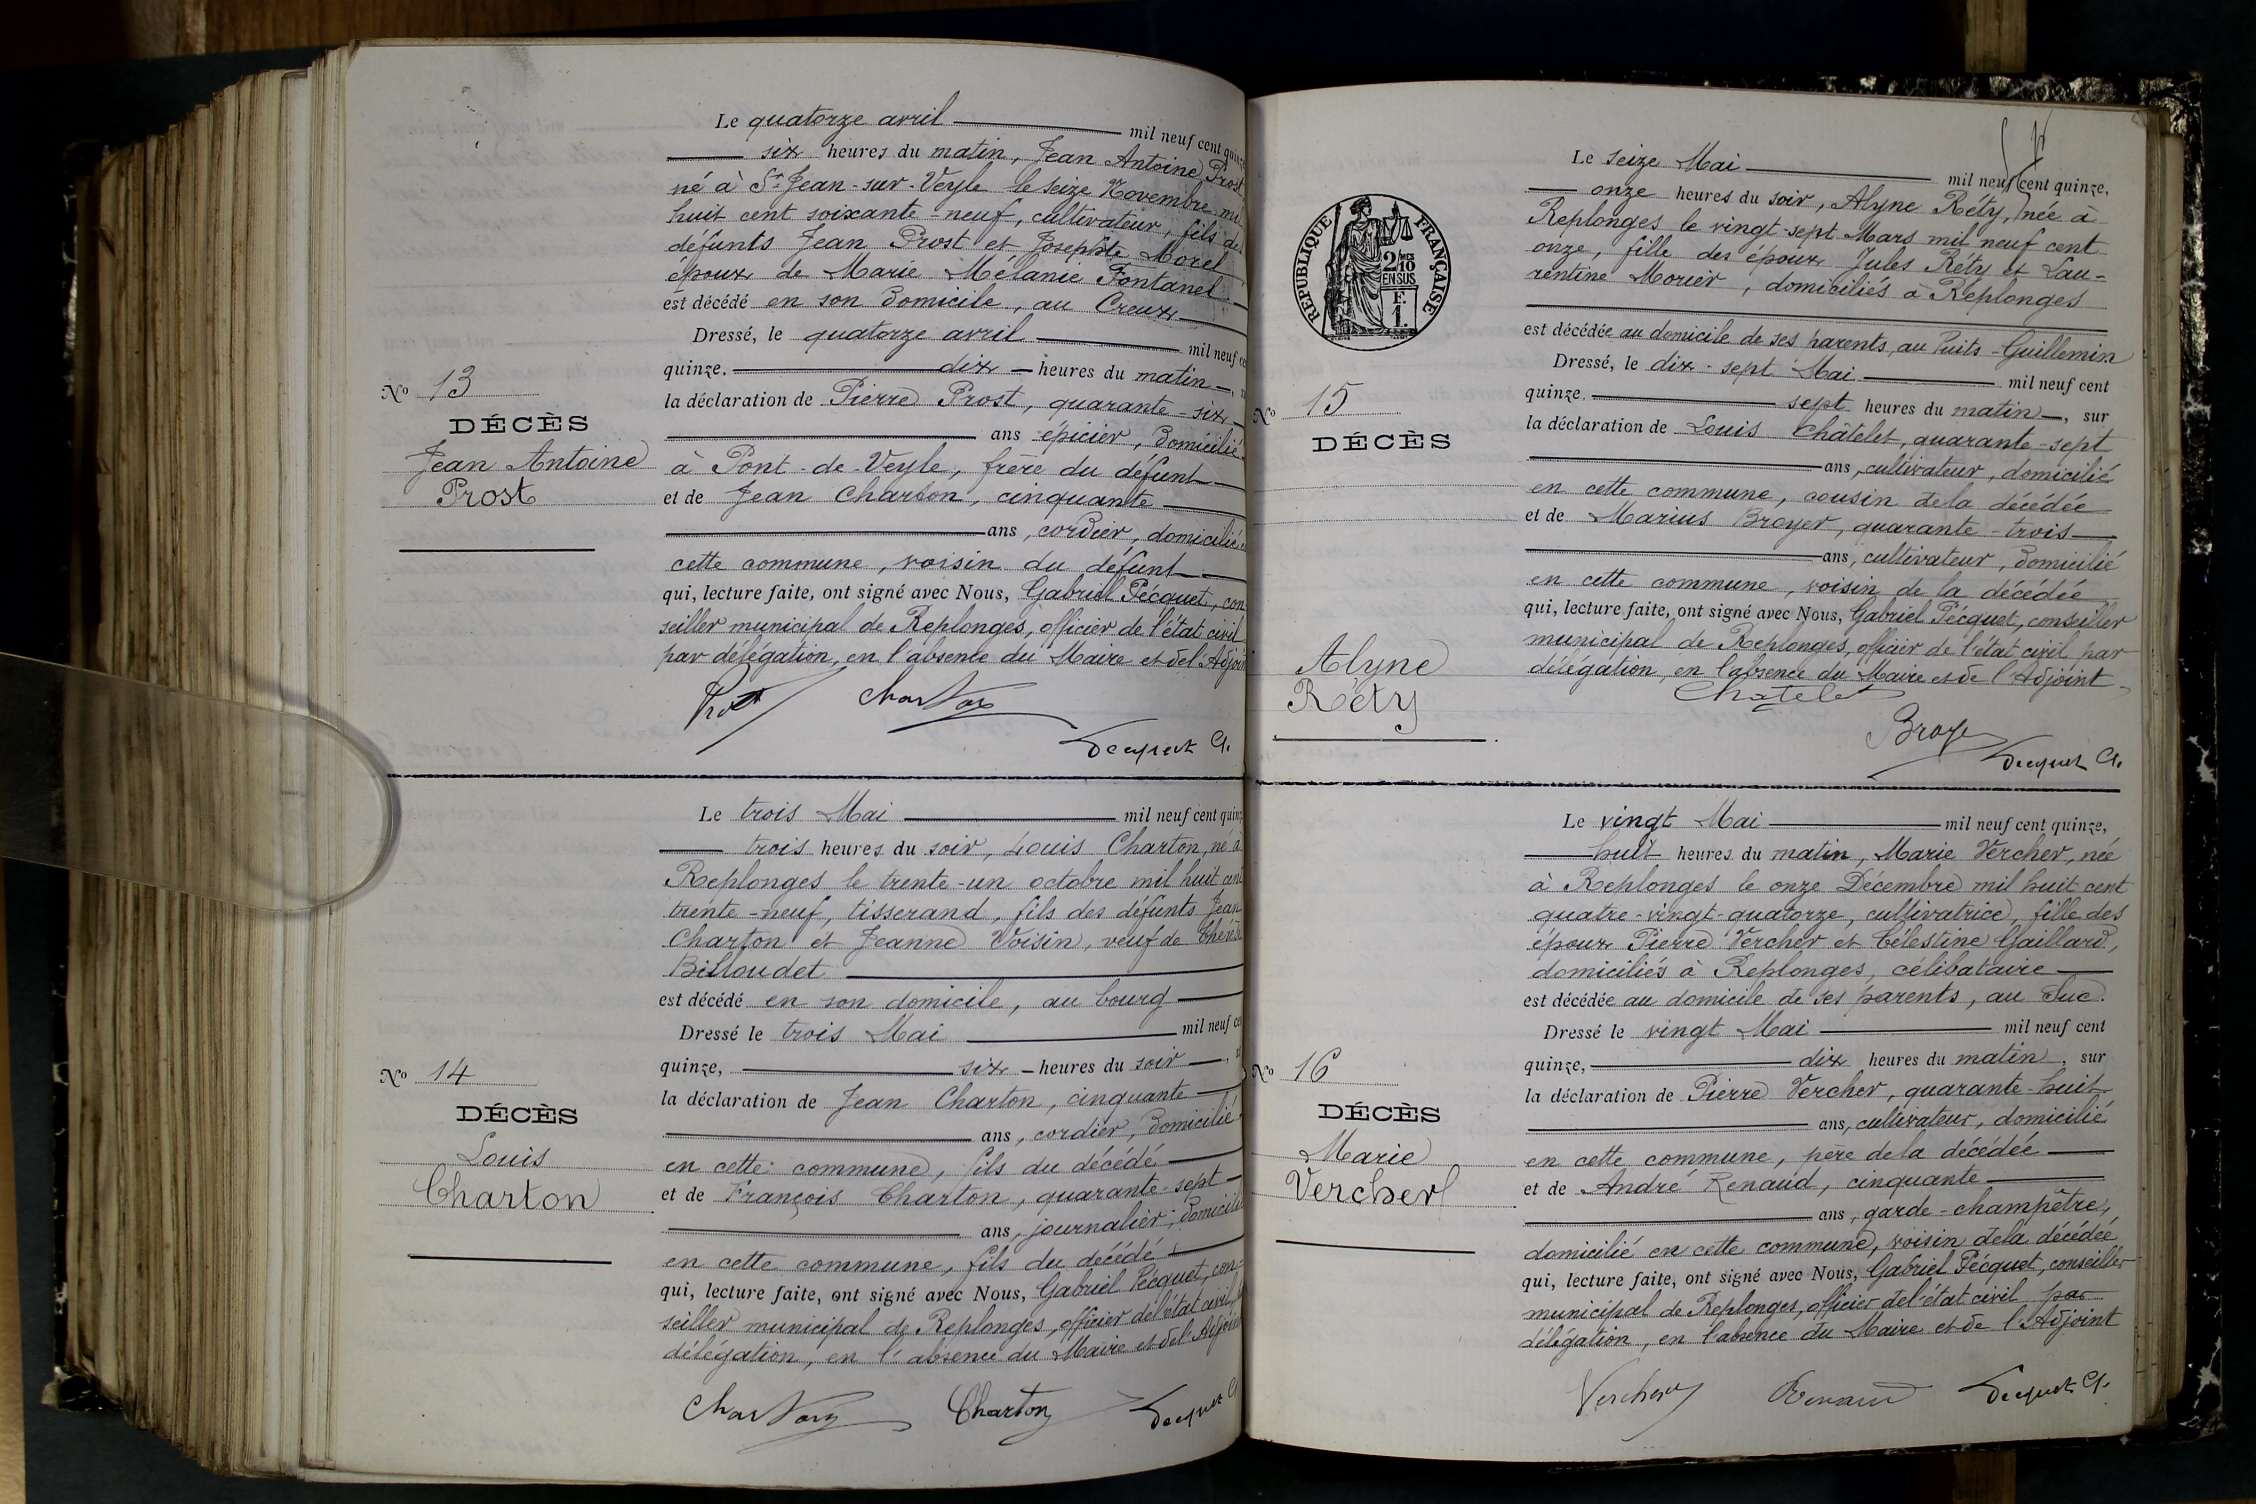 Le quatorze avril mil neuf cent quinze
six heures du matin, Jean Antoine Prost
né à St Jean-sur-Veyle le seize Novembre mil
huit cent soixante-neuf, cultivateur, fils des
défunts Jean Prost et Josephte Morel
époux de Marie Mélanie Fontanel
est décédé en son domicile, au Creux
Dressé, le quatorze avril mil neuf ce
quinze. dix heures du matin
la déclaration de Pierre Prost, quarante-six
ans épicier, domicilié
à Pont-de-Veyle, frère du défunt
et de Jean Charton, cinquante
ans, cordier, domicilié
cette commune, voisin du défunt
qui, lecture faite, ont signé avec Nous, Gabriel Pécquet, con
seiller municipal de Replonges, officier de l'état civil
par délégation, en l'absence du Maire et de l'Adjoint
No 13
DÉCÈS
Jean Antoine
Prost
Prost Charton
Pecquet G.
Le trois Mai mil neuf cent quinz
trois heures du soir, Louis Charton, né à
Replonges le trente-un octobre mil huit cent
trente-neuf, tisserand, fils des défunts Jean
Charton et Jeanne Voisin, veuf de Thérèse
Billoudet
est décédé en son domicile, au bourg
Dressé le trois Mai mil neuf ce
quinze, six heures du soir
la déclaration de Jean Charton, cinquante
ans, cordier, domicilié
en cette commune, fils du décédé
et de François Charton, quarante-sept
ans, journalier, domicilié
en cette commune, fils du décédé
qui, lecture faite, ont signé avec Nous, Gabriel Pécquet, con=
seiller municipal de Replonges, officier de l'état civil
délégation, en l'absence du Maire et de l'Adjoint
No 14
DÉCÈS
Louis
Charton
Charton Charton Pecquet G.
RÉPUBLIQUE FRANÇAISE
2/10 EN SUS
F. 1.
Le seize Mai mil neuf cent quinze,
onze heures du soir, Alyne Réty, née à
Replonges le vingt-sept Mars mil neuf cent
onze, fille des époux Jules Réty et Lau-
rentine Morier, domiciliés à Replonges
est décédée au domicile de ses parents, au Puits-Guillemin
Dressé, le dix-sept Mai mil neuf cent
quinze. sept heures du matin, sur
la déclaration de Louis Châtelet, quarante-sept
ans, cultivateur, domicilié
en cette commune, cousin de la décédée
et de Marius Broyer, quarante-trois
ans, cultivateur, domicilié
en cette commune, voisin de la décédée
qui, lecture faite, ont signé avec Nous, Gabriel Pécquet, conseiller
municipal de Replonges, officier de l'état civil par
délégation, en l'absence du Maire et de l'Adjoint
No 15
DÉCÈS
Alyne
Réty
Chatelet
Broyer
Pecquet G.
Le vingt Mai mil neuf cent quinze,
huit heures du matin, Marie Vercher, née
à Replonges le onze Décembre mil huit cent
quatre-vingt-quatorze, cultivatrice, fille des
époux Pierre Vercher et Célestine Gaillard,
domiciliés à Replonges, célibataire
est décédée au domicile de ses parents, au Duc.
Dressé le vingt Mai mil neuf cent
quinze, dix heures du matin, sur
la déclaration de Pierre Vercher, quarante-huit
ans, cultivateur, domicilié
en cette commune, père de la décédée
et de André Renaud, cinquante
ans, garde-champêtre,
domicilié en cette commune, voisin de la décédée
qui, lecture faite, ont signé avec Nous, Gabriel Pécquet, conseiller
municipal de Replonges, officier de l'état civil par
délégation, en l'absence du Maire et de l'Adjoint
No 16
DÉCÈS
Marie
Vercher
Vercher Renaud Pecquet G.